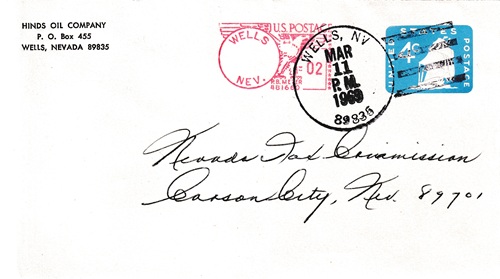 HINDS OIL COMPANY
P. O. Box 455
WELLS, NEVADA 89835
U.S. POSTAGE
WELLS
NEV.
02
P.B. METER
WELLS, NV
MAR
11
P.M.
1969
89835
UNITED STATES
4¢
POSTAGE
Nevada Tax Commission
Carson City, Nev. 89701